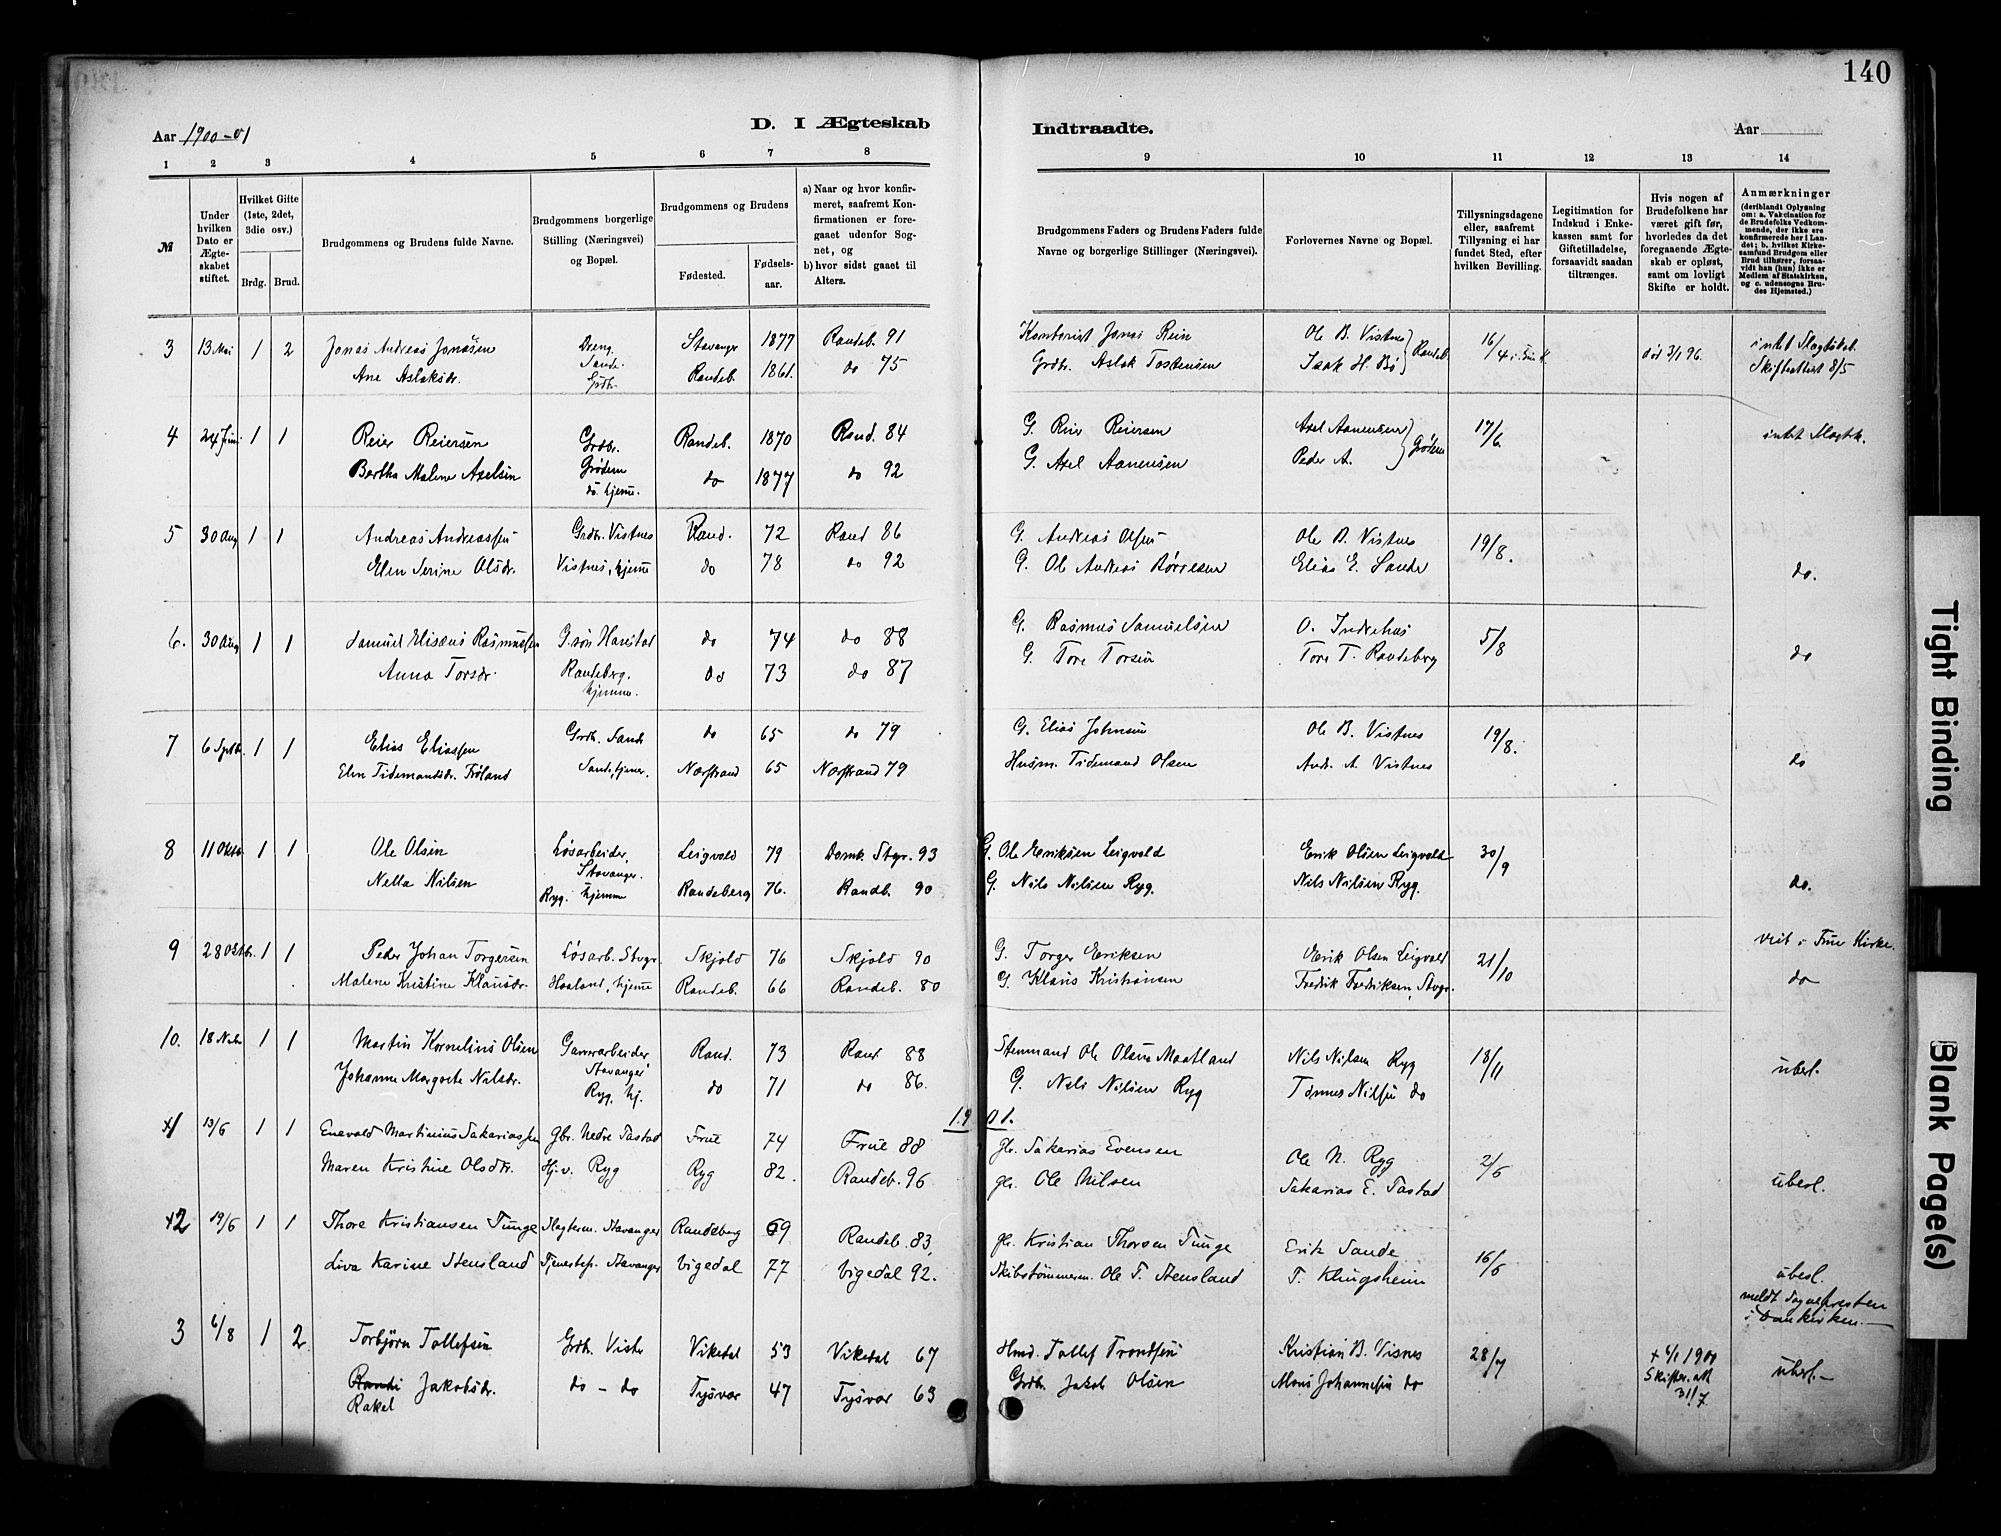 140
Aar 1900-01
D. I Ægteskab Indtraadte.
Aar
1 2 3 4 5 6 7 8 9 10 11 12 13 14
№
Under hvilken Dato er Ægteskabet stiftet.
Hvilket Gifte (1ste, 2det, 3die osv.)
Brdg. Brud.
Brudgommens og Brudens fulde Navne.
Brudgommens borgerlige Stilling (Næringsvei) og Bopæl.
Brudgommens og Brudens
Fødested. Fødselsaar.
a) Naar og hvor konfirmeret, saafremt Konfirmationen er foregaaet udenfor Sognet, og
b) hvor sidst gaaet til Alters.
Brudgommens Faders og Brudens Faders fulde Navne og borgerlige Stillinger (Næringsvei).
Forlovernes Navne og Bopæl.
Tillysningsdagene eller, saafremt Tillysning ei har fundet Sted, efter hvilken Bevilling.
Legitimation for Indskud i Enkekassen samt for Giftetilladelse, forsaavidt saadan tiltrænges.
Hvis nogen af Brudefolkene har været gift før, hvorledes da det foregaaende Ægteskab er opløst, samt om lovligt Skifte er holdt.
Anmærkninger
(deriblandt Oplysning om: a. Vakcination for de Brudefolks Vedkommende, der ikke ere konfirmerede her i Landet; b. hvilket Kirkesamfund Brudgom eller Brud tilhører, forsaavidt han (hun) ikke er Medlem af Statskirken, og c. udensogns Brudes Hjemsted.)
3 13 Mai 1 2 Jonas Andreas Jonasen Dreng Sande Stavanger 1877 Randeb. 91 Kontorist Jonas Rein Ole B. Vistnes 16/4 død 3/1 96. intet Slagtskab.
Ane Aslaksdr. Grdb. Randeb. 1861. do 75 Grdb. Aslak Tostensen Isak H. Bø Randeb. Skifteattest 8/5
4 24 Juni 1 1 Reier Reiersen Grdb. Grødem Randeb. 1870 Rand. 84 G. Reier Reiersen Axel Aanensen 17/6 intet Slagtsk.
Bertha Malene Axelsen do. hjeme. do 1877 do 92 G. Axel Aanensen Peder A. Grødem
5 30 Aug 1 1 Andreas Andreassen Grdb. Vistnes Rand. 72 Rand 86 G. Andreas Olsen Ole B. Vistnes 19/8.
Elen Serine Olsdr. Vistnes, hjeme do 78 do 92 G. Ole Andreas Børresen Elias E. Sande do.
6. 30 Aug 1 1 Samuel Elisæus Rasmussen G.søn Harestad do 74 do 88 G. Rasmus Samuelsen O. Indrehus 5/8 do
Anna Torsdr. Randeberg. hjemme. do 73 do 87 G. Tore Torsen Tore T. Randeberg
7 6 Septb. 1 1 Elias Eliassen Grdb. Sande do 65 do 79 G. Elias Johnsen Ole B. Vistnes 19/8.
Elen Tidemandsdr. Frøland Sande, tjener. Nærstrand 65 Nærstrand 79 Husm. Tidemand Olsen Andr. A. Vistnes do
8 11 Oktb. 1 1 Ole Olsen Løsarbeider, Stavanger. Leigvold 79 Domk. Stgr. 93 G. Ole Eriksen Leigvold Erik Olsen Leigvold 30/9
Nella Nilsen Ryg. hjemme Randeberg 76. Randb. 90 G. Nils Nilsen Ryg. Nils Nilsen Ryg. do.
9 28 Oktbr. 1 1 Peder Johan Torgersen Løsarb. Stvgr. Skjold 76 Skjold 90 G. Torger Eriksen Erik Olsen Leigvold 21/10 viet i Frue Kirke.
Malene Kristine Klausdr. Haaland, hjeme Randeb. 66 Randeb. 80 G. Klaus Kristiansen Fredrik Fredriksen, Stvgr. do
10. 18 Nvbr 1 1 Martin Kornelius Olsen Garverarbeider Stavanger Rand. 73 Rand 88 Stenmand Ole Olsen Maatland Nils Nilsen Ryg 18/11 ubesl.
Johanne Margrete Nilsdr. Ryg. hj. do 71 do 86. G. Nils Nilsen Ryg Tønnes Nilsen do
1901.
+1 13/6 1 1 Enevald Martinius Sakariassen Gbr. Nedre Tastad Frue 74 Frue 88 gbr. Sakarias Evensen Ole N. Ryg 2/6
Maren Kristine Olsdtr. Hj.v. Ryg Ryg 82. Randeb. 96 gbr. Ole Nilsen Sakarias E. Tastad ubesl.
+2 19/6 1 1 Thore Kristiansen Tunge Slagterm. Stavanger Randeberg 69 Randeb. 83, gbr. Kristian Thorsen Tunge Erik Sande 16/6
Liva Karine Stensland Tjenestep. Stavanger Vigedal 77 Vigedal 92. Skibstømmerm. Ole T. Stensland T. Klungsheim ubesl. meldt Sognepresten i Domkirken.
3 6/8 1 2 Torbjørn Tollefsen Grdb. Viste Vikedal 53 Vikedal 67 Husmd. Tollef Trondsen Kristian B. Visnes 28/7 + 6/1 1900 ubesl.
Randi Rakel Jakobsdr. do - do Tysvær 47 Tysvær 63 Grdb. Jakob Olsen Mons Johannesen do Skifter. att 31/7
Tight Binding
Blank Page(s)